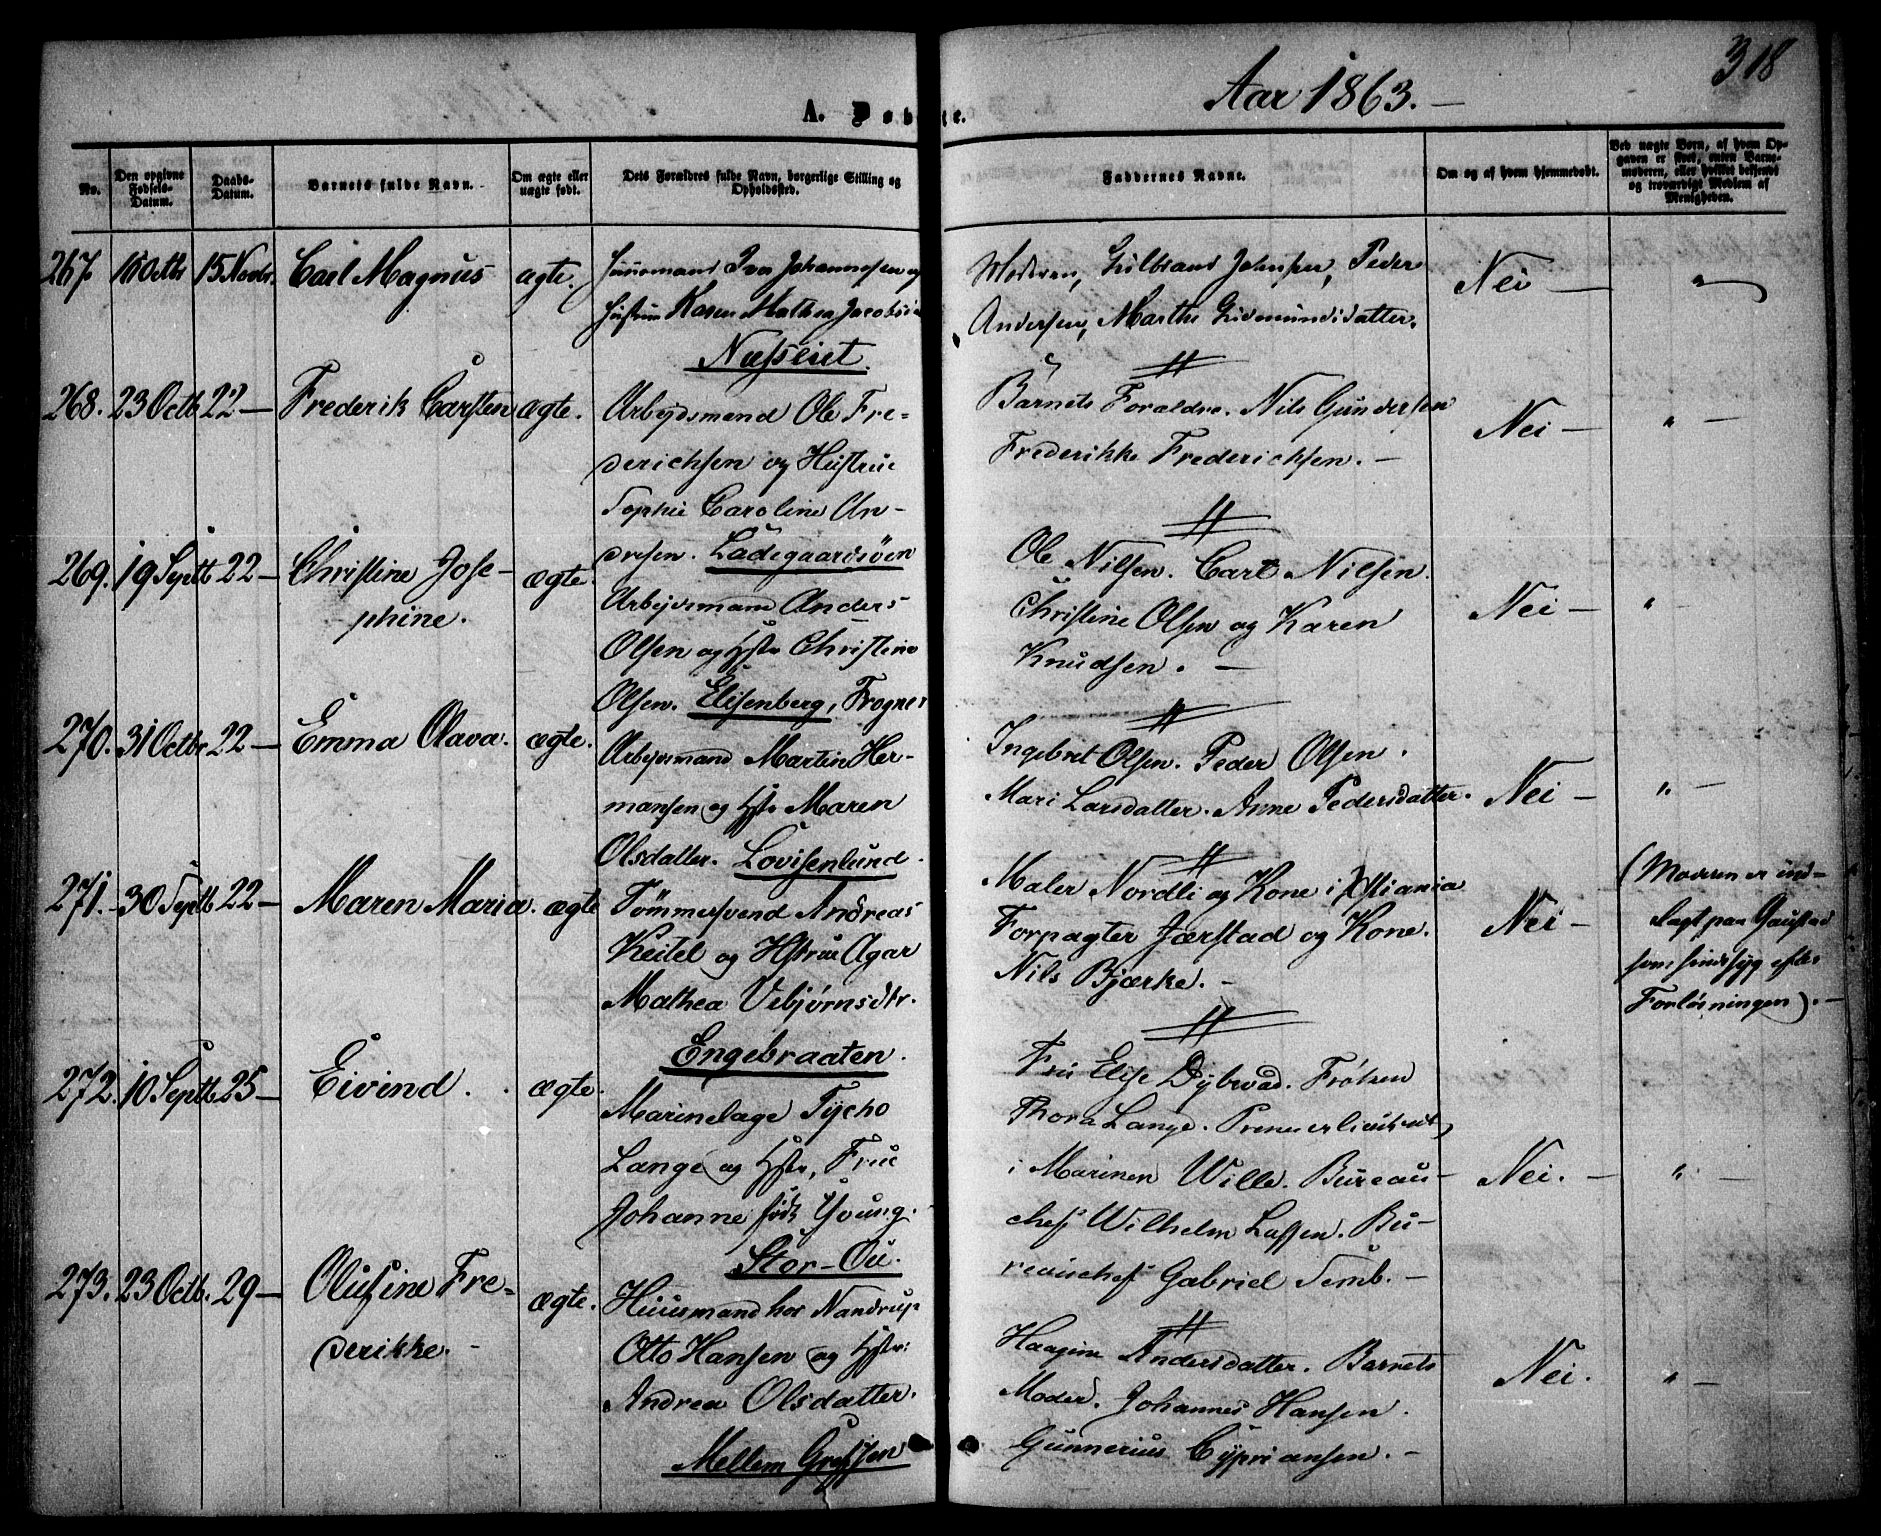 318
Aar 1863. —
A. Døbte.
No.
Den opgivne Fødsels-Datum.
Daabs-Datum.
Barnets fulde Navn.
Om ægte eller uægte født.
Dets Forældres fulde Navn, borgerlige Stilling og Opholdssted.
Faddernes Navne.
Om og af hvem hjemmedøbt.
Ved uægte Børn, af hvem Opgaven er skeet, enten Barnemoderen, eller hvilket bekjendt og troværdigt Medlem af Menigheden.
267. Octbr 15 Novbr. Carl Magnus ægte.
Huusmand Iver Johannesen og
Hustru Karen Mathea Jacobs
Næsseiet.
Moderen, Gulbrand Johnsen, Peder
Andersen, Marthe Gudmundsdatter.
Nei — "
268. 23 Octb. 22 — Frederik Carsten ægte.
Arbeidsmand Ole Fre-
derichsen og Hustrue
Sophie Caroline An-
dresen. Ladegaardsøen
Barnets Forældre. Nils Gundersen
Frederikke Frederichsen. —
Nei — " —
269. 19 Septb 22 — Christine Jose-
phine.
ægte.
Arbeidsmand Anders
Olsen og Hstr Christine
Olsen. Elisenberg, Frogner
Ole Nilsen. Carl Nilsen.
Christine Olsen og Karen
Knudsen. —
Nei — " —
270. 31 Octbr 22 — Emma Olava. ægte.
Arbeidsmand Martin Her-
mansen og Hstr Maren
Olsdatter. Lovisenlund.
Ingebret Olsen. Peder Olsen.
Mari Larsdatter. Anne Pedersdatter.
Nei — " —
271. 30 Septb 22 — Maren Maria. ægte
Tømmersvend Andreas
Keitel og Hstrue Agar
Mathea Vebjørnsdtr.
Engebraaten.
Maler Nordli og Kone i Xstiania
Forpagter Jærstad og Kone.
Nils Bjærke. —
Nei —
(Moderen er ind-
lagt paa Gaustad
som sindsyg efter
Forløsningen). —
272. 10 Septb 25 — Eivind. ægte.
Marinelæge Tycho
Lange og Hstr, Frue
Johanne født Young.
Stor-Ou.
Fru Elise Dybwad. Frøken
Thora Lange. Premierlieutnant
i Marinen Wille. Bureau-
chef Wilhelm Lassen. Bu-
reauchef Gabriel Semb. —
Nei. — " —
273. 23 Octb. 29 — Olufine Fre-
derikke. —
ægte.
Huusmand hos Nandrup
Otto Hansen og Hstr:
Andrea Olsdatter.
Mellem Grefsen
Andersdatter. Barnets
Moder. Johannes Hansen.
Gunnerius Cypriansen. —
Nei. " —